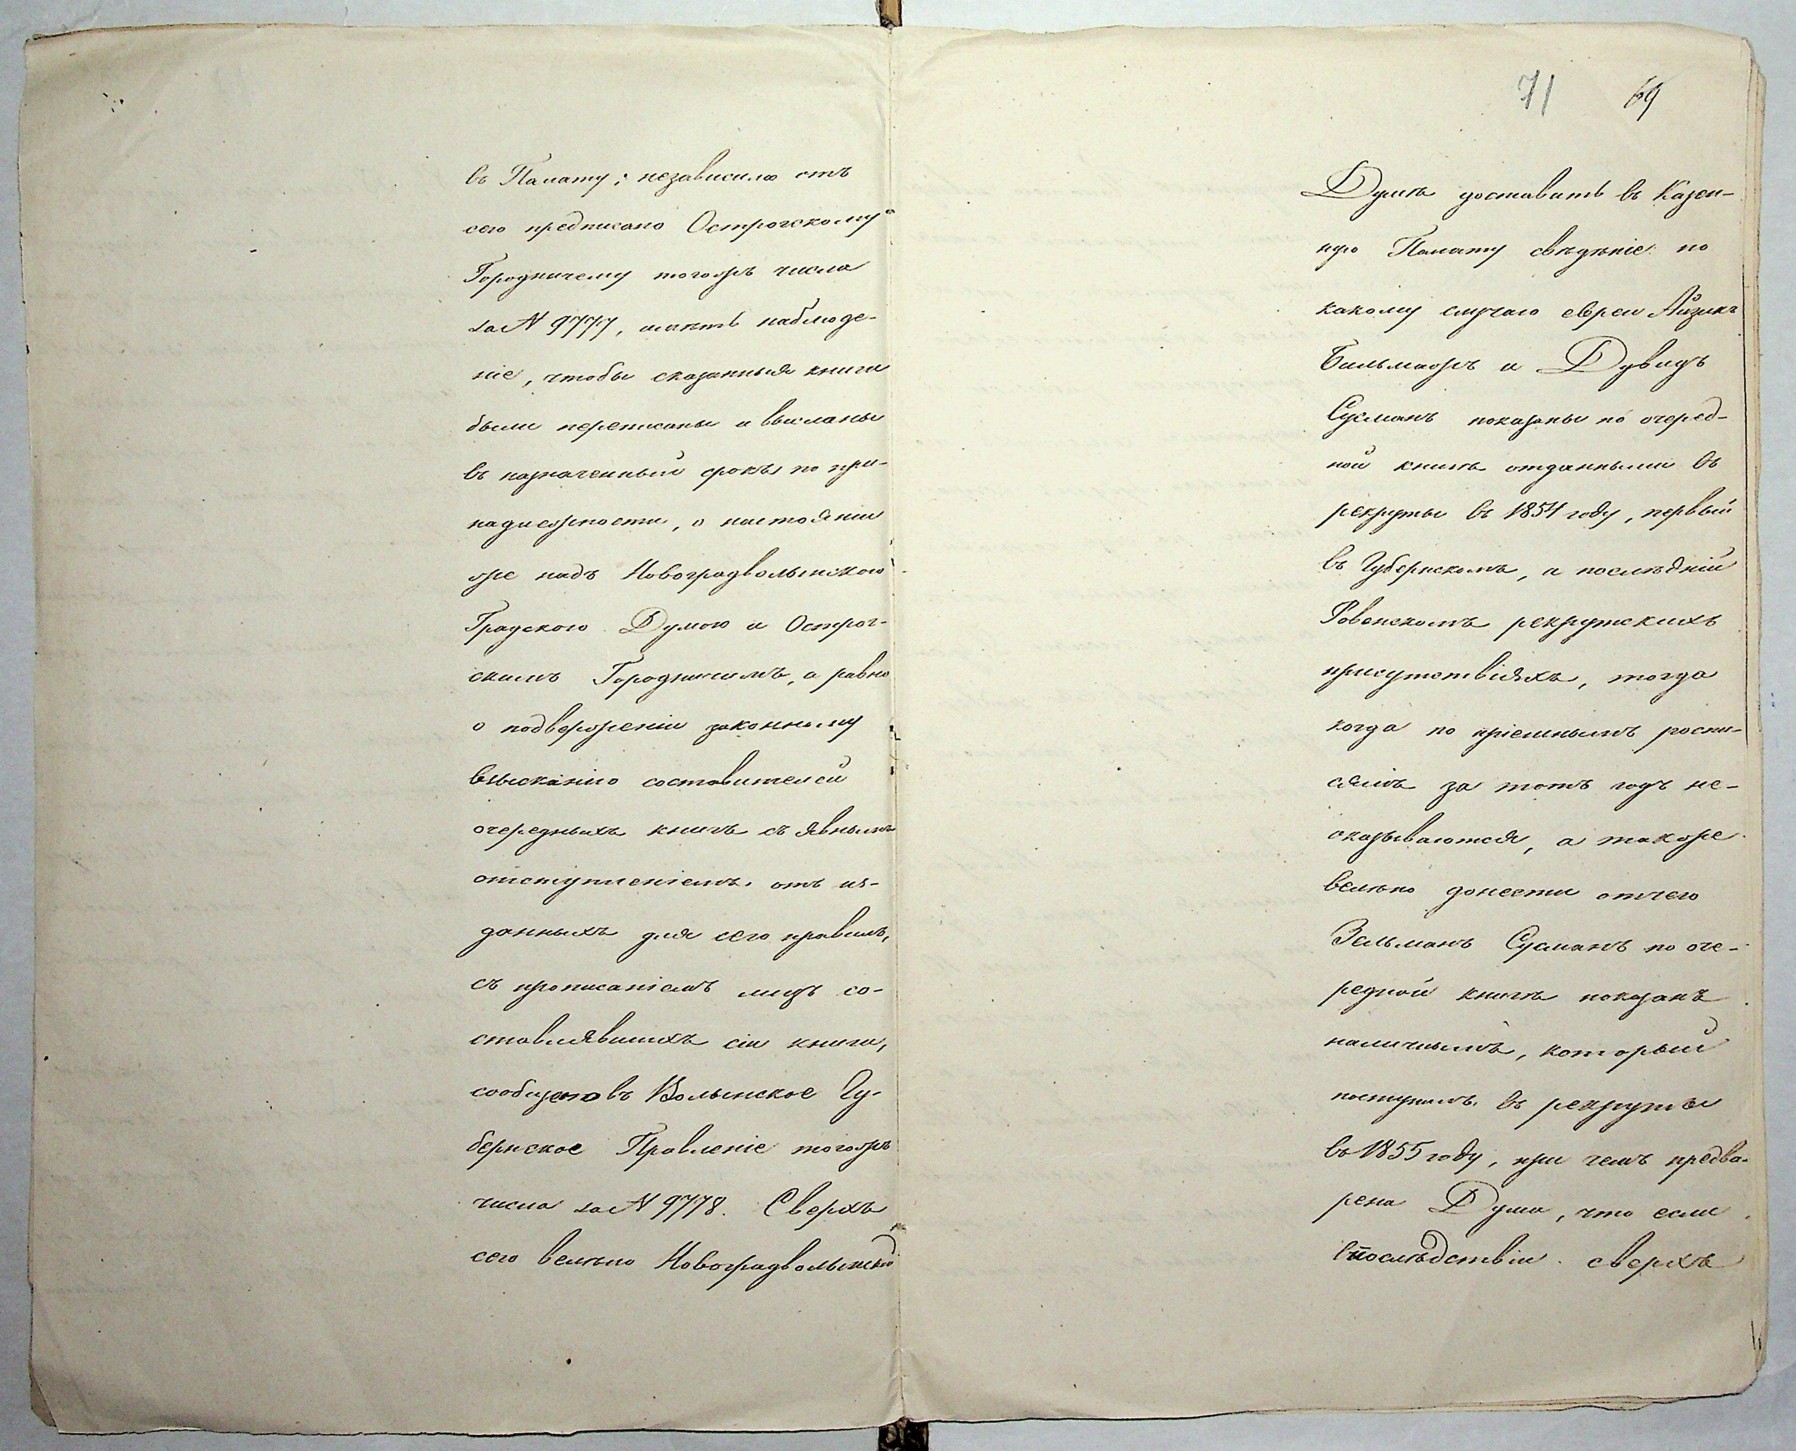 въ Палату; независимо отъ
сего предписано Острогскому
Городничему тогожъ числа
за № 9777, имѣть наблюде-
ніе, чтобы сказанныя книги
были переписаны и высланы
въ назначенный срокъ по при-
надлежности, о настояніи
же надъ Новоградволынскою
Градскою Думою и Острог-
скимъ Городничимъ, а равно
о подверженіи законному
взысканію составителей
очередныхъ книгъ съ явнымъ
отступленіемъ отъ из-
данныхъ для сего правилъ,
съ прописаніемъ лицъ со-
ставлявшихъ сіи книги,
сообщено въ Волынское Гу-
бернское Правленіе тогожъ
числа за № 9778. Сверхъ
сего велѣно Новоградволынской
71 69
Думѣ доставить въ Казен-
ную Палату свѣдѣніе по
какому случаю евреи Айзикъ
Бильмажъ и Дувидъ
Сусманъ показаны по очеред-
ной книгѣ отданными въ
рекруты въ 1854 году, первый
въ Губернскомъ, а послѣдній
Ровенскомъ рекрутскихъ
присутствіяхъ, тогда
когда по пріемнымъ роспи-
сямъ за тотъ годъ не-
оказываются, а также
велѣно донести отчего
Зельманъ Сусманъ по оче-
редной книгѣ показанъ
наличнымъ, который
поступилъ въ рекруты
въ 1855 году, при чемъ предва-
рена Дума, что если
впослѣдствіи сверхъ